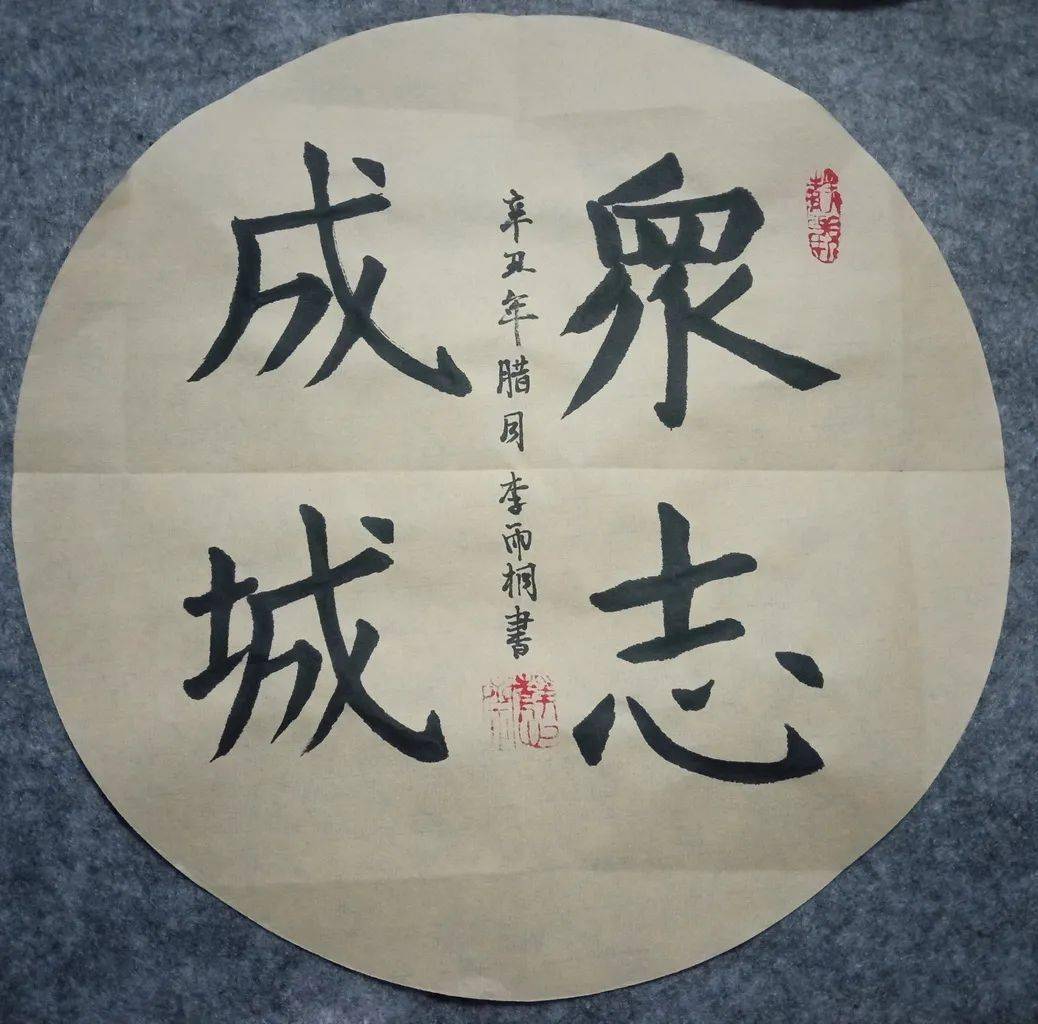 眾志
成城
辛丑年腊月李雨桐書